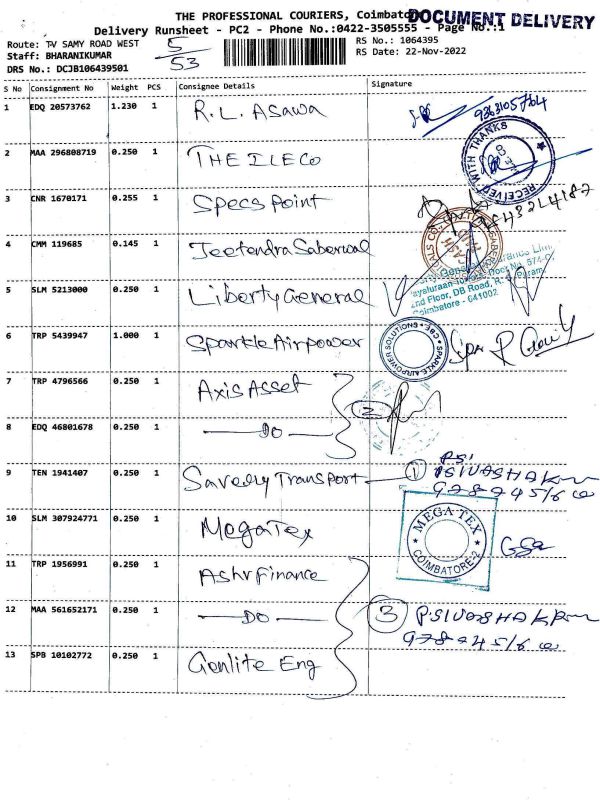 THE PROFESSIONAL COURIERS, Coimbato
DOCUMENT DELIVERY
Delivery Runsheet - PC2 - Phone No.:0422-3505555 - Page No.:1
Route: TV SAMY ROAD WEST 5/53 RS No.: 1064395
Staff: BHARANIKUMAR RS Date: 22-Nov-2022
DRS No.: DCJB106439501
S No Consignment No Weight PCS Consignee Details Signature
1 EDQ 20573762 1.230 1 R.L. Asawa
RECEIVED WITH THANKS
2 MAA 296808719 0.250 1 THE ILECO
3 CNR 1670171 0.255 1 Specs Point
4 CMM 119685 0.145 1 Jeetendra Saberwal
2nd Floor, DB Road, R.S. Puram
Coimbatore - 641002
5 SLM 5213000 0.250 1 Liberty General
6 TRP 5439947 1.000 1 Sparkle Airpower
SPARKLE AIRPOWER SOLUTIONS * CBE *
7 TRP 4796566 0.250 1 Axis Asset 2
8 EDQ 46801678 0.250 1 DO
9 TEN 1941407 0.250 1 Savedry Transport 1
10 SLM 307924771 0.250 1 MegaTex
MEGA TEX
COIMBATORE-2
11 TRP 1956991 0.250 1 Ashv Finance
12 MAA 561652171 0.250 1 DO 3
13 SPB 10102772 0.250 1 Genlite Eng